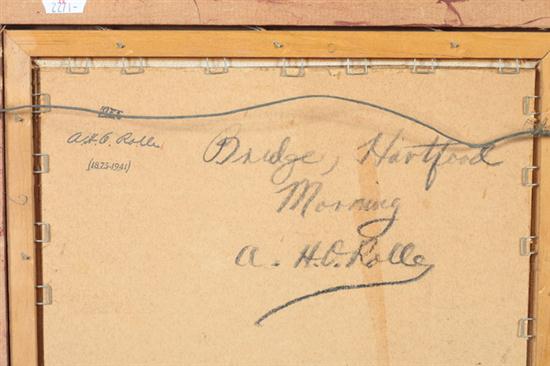 A.H.O. Rolle
(1875-1941)
Bridge, Hartford
Morning
A. H.O. Rolle